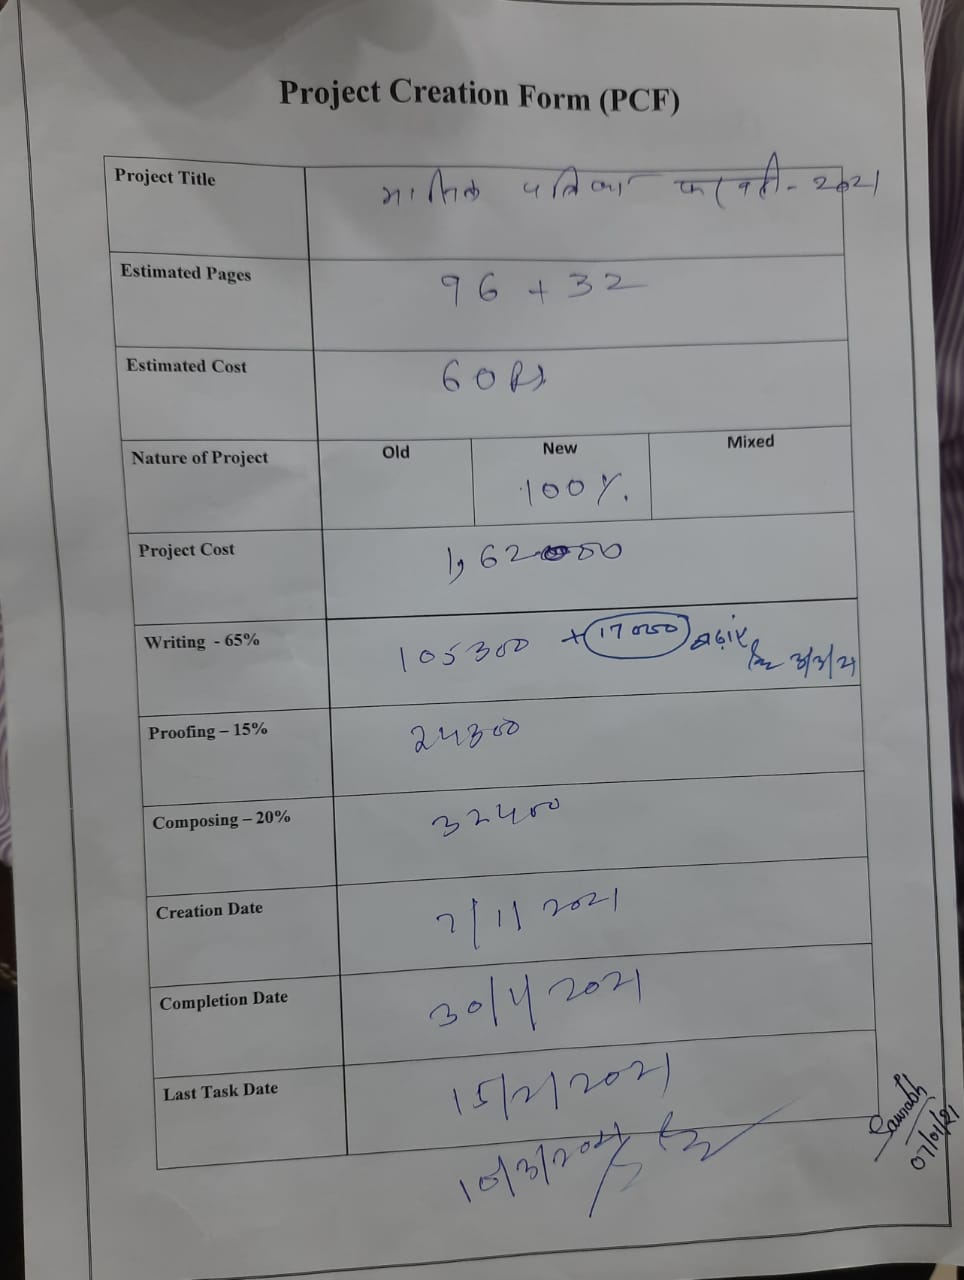 Project Creation Form (PCF)
Project Title मासिक पत्रिका फरवरी - 2021
Estimated Pages 96 + 32
Estimated Cost 60 Rs
Nature of Project Old New Mixed
100%.
Project Cost 1,62000
Writing - 65% 105300 + 17000
3/3/21
Proofing – 15% 24300
Composing – 20% 32400
Creation Date 7/1/2021
Completion Date 30/4/2021
Last Task Date 15/2/2021
10/3/2021
Saurabh
07/01/21